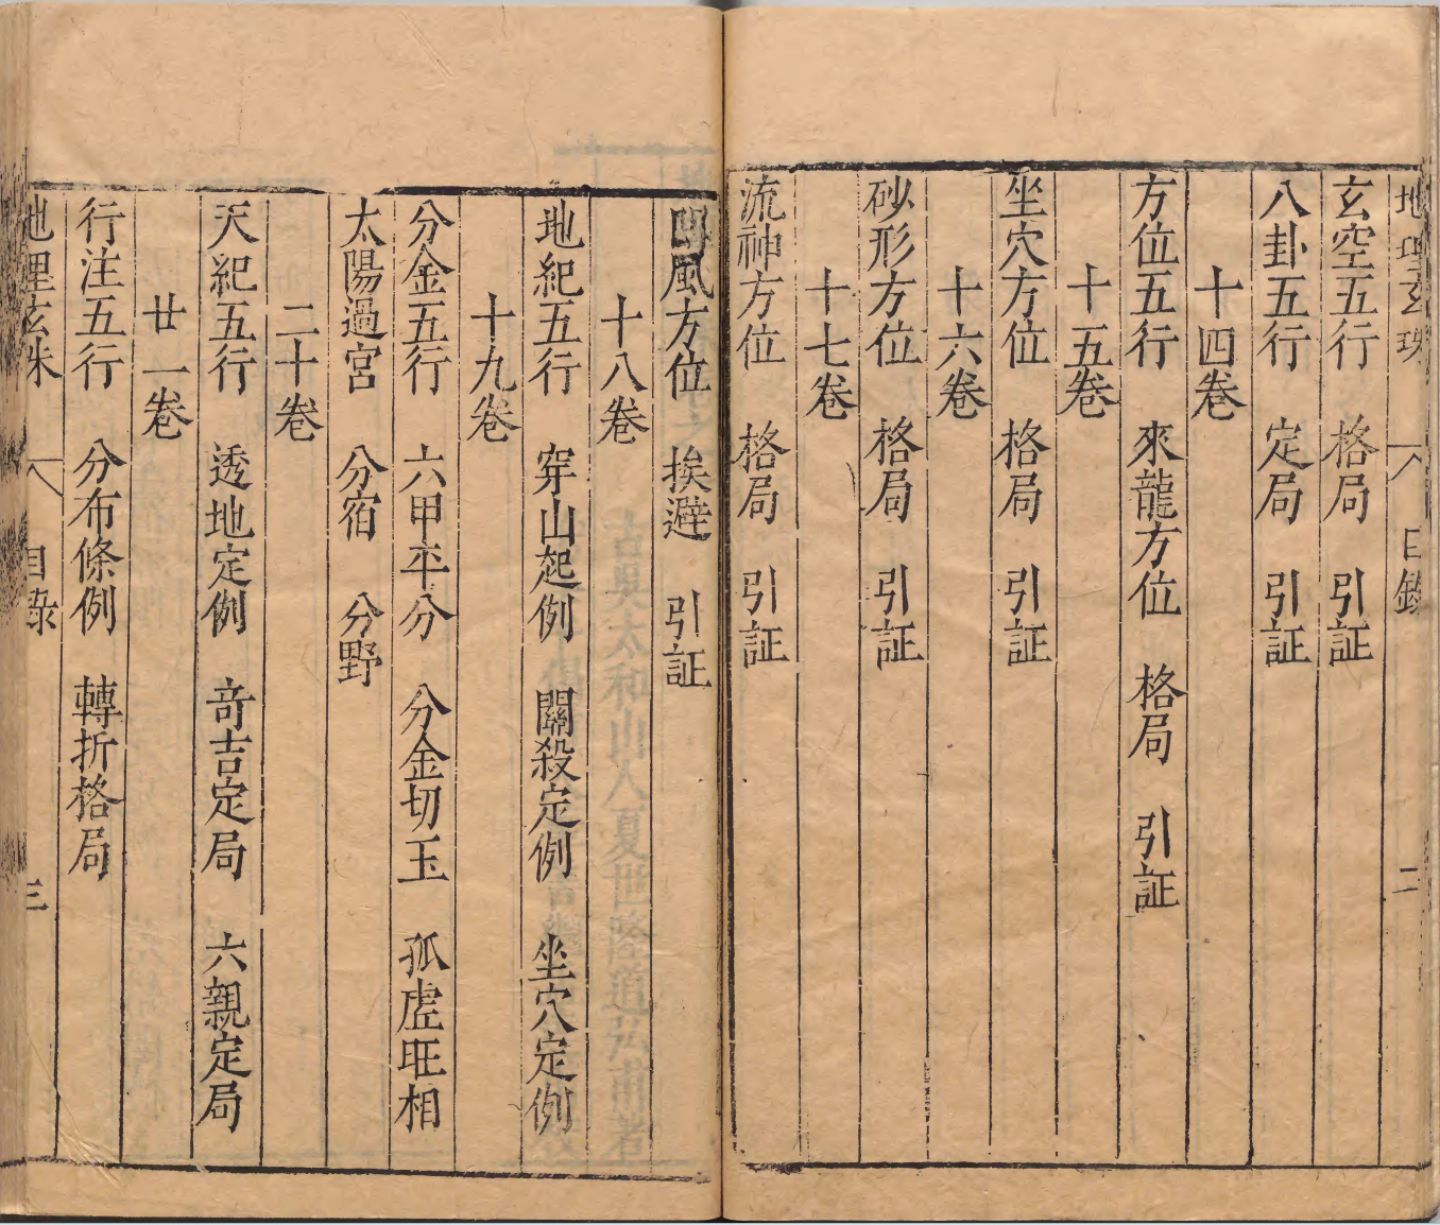 地理玄珠 目錄 二
玄空五行 格局 引証
八卦五行 定局 引証
十四卷
方位五行 來龍方位 格局 引証
十五卷
坐穴方位 格局 引証
十六卷
砂形方位 格局 引証
十七卷
流神方位 格局 引証
凹風方位 挨避 引証
十八卷
地紀五行 穿山起例 關殺定例 坐穴定例
十九卷
分金五行 六甲平分 分金切玉 孤虛旺相
太陽過宮 分宿 分野
二十卷
天紀五行 透地定例 竒吉定局 六親定局
廿一卷
行注五行 分布條例 轉折格局
地理玄珠 目錄 三